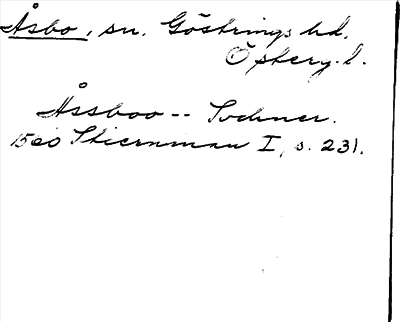 Åsbo, sn. Göstrings hd.
Östergl.
Åssboo -- Sochner.
1560 Stiernman I, s. 231.